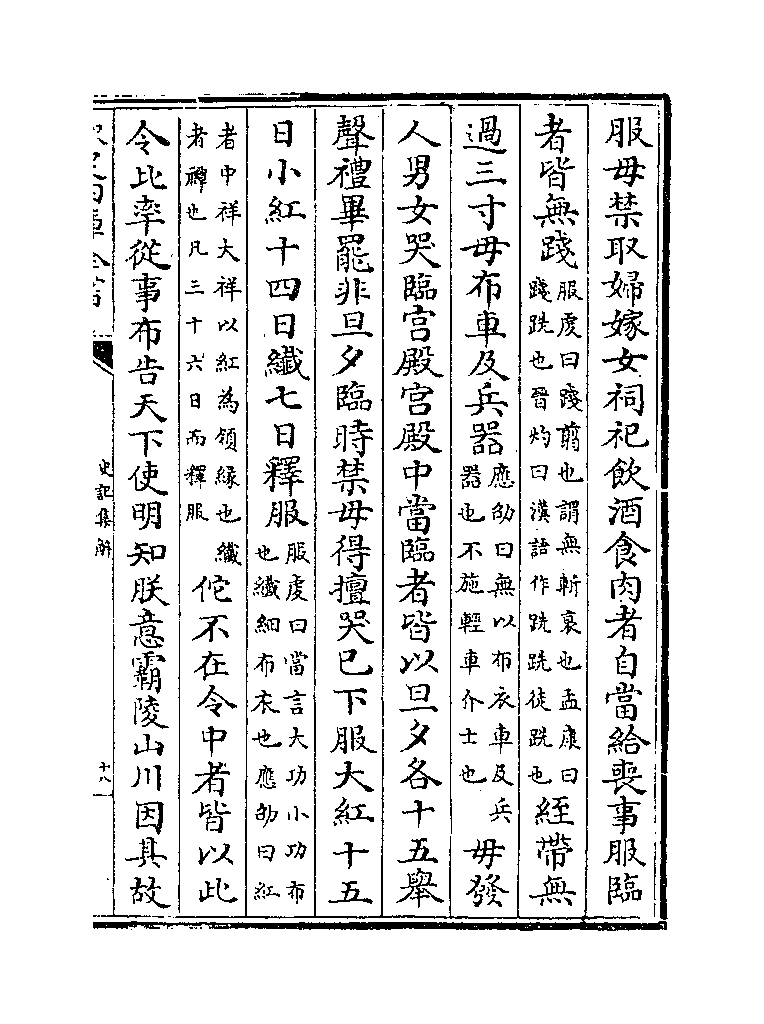 服毋禁取婦嫁女祠祀飲酒食肉者自當給喪事服臨
者皆無踐服虔曰踐翦也謂無斬衰也孟康曰踐跣也晉灼曰漢語作跣跣徒跣也絰帶無
過三寸毋布車及兵器應劭曰無以布衣車及兵器也不施輕車介士也毋發
人男女哭臨宫殿宫殿中當臨者皆以旦夕各十五舉
聲禮畢罷非旦夕臨時禁毋得擅哭已下服大紅十五
日小紅十四日纖七日釋服服虔曰當言大功小功布也纖細布衣也應劭曰紅
者中祥大祥以紅為領緣也纖者禫也凡三十六日而釋服佗不在令中者皆以此
令比率從事布告天下使明知朕意霸陵山川因其故
史記集解
十八